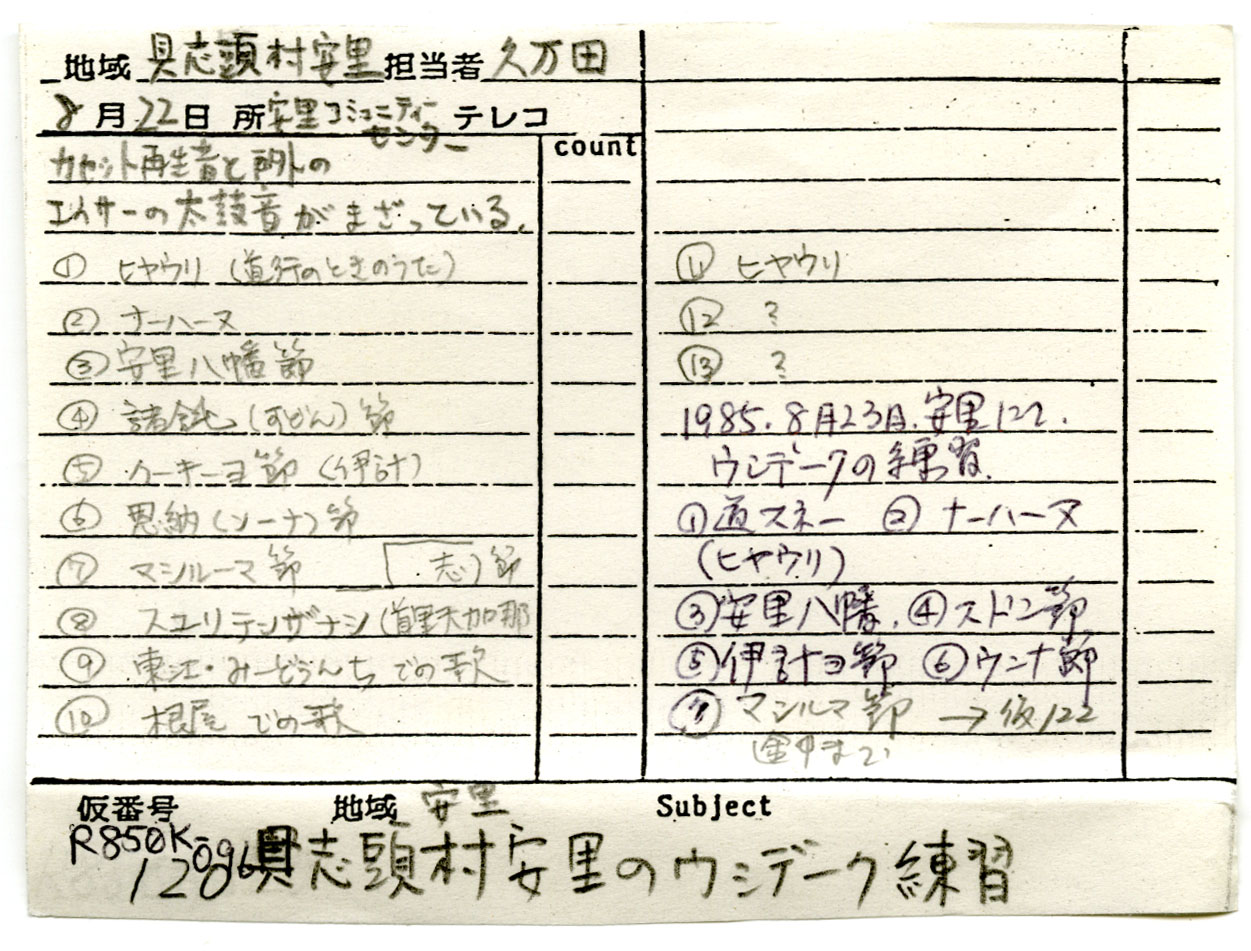 地域 具志頭村安里 担当者 久万田
8月22日 所 安里コミュニティーセンター テレコ
count
カセット再生音と所外の
エイサーの太鼓音がまざっている。
① ヒヤウリ (道行のときのうた)
② ナーハーヌ
③ 安里八幡節
④ 諸鈍(すどん)節
⑤ イーキーヨ節 (伊計)
⑥ 恩納(ソーナ)節
⑦ マシルーマ節 [ 志)節
⑧ スユリテンザナシ (首里天加那
⑨ 東江・みーどぅんち での歌
⑩ 根屋 での歌
⑪ ヒヤウリ
⑫ ?
⑬ ?
1985. 8月23日. 安里にて.
ウシデークの練習.
① 道スネー ② ナーハーヌ
(ヒヤウリ)
③ 安里八幡. ④ スドン節
⑤ 伊計ヨ節 ⑥ ウンナ節
⑦ マシルマ節 →
途中まで
仮番号 地域 安里 Subject
R850K-
120 096
具志頭村安里のウシデーク練習